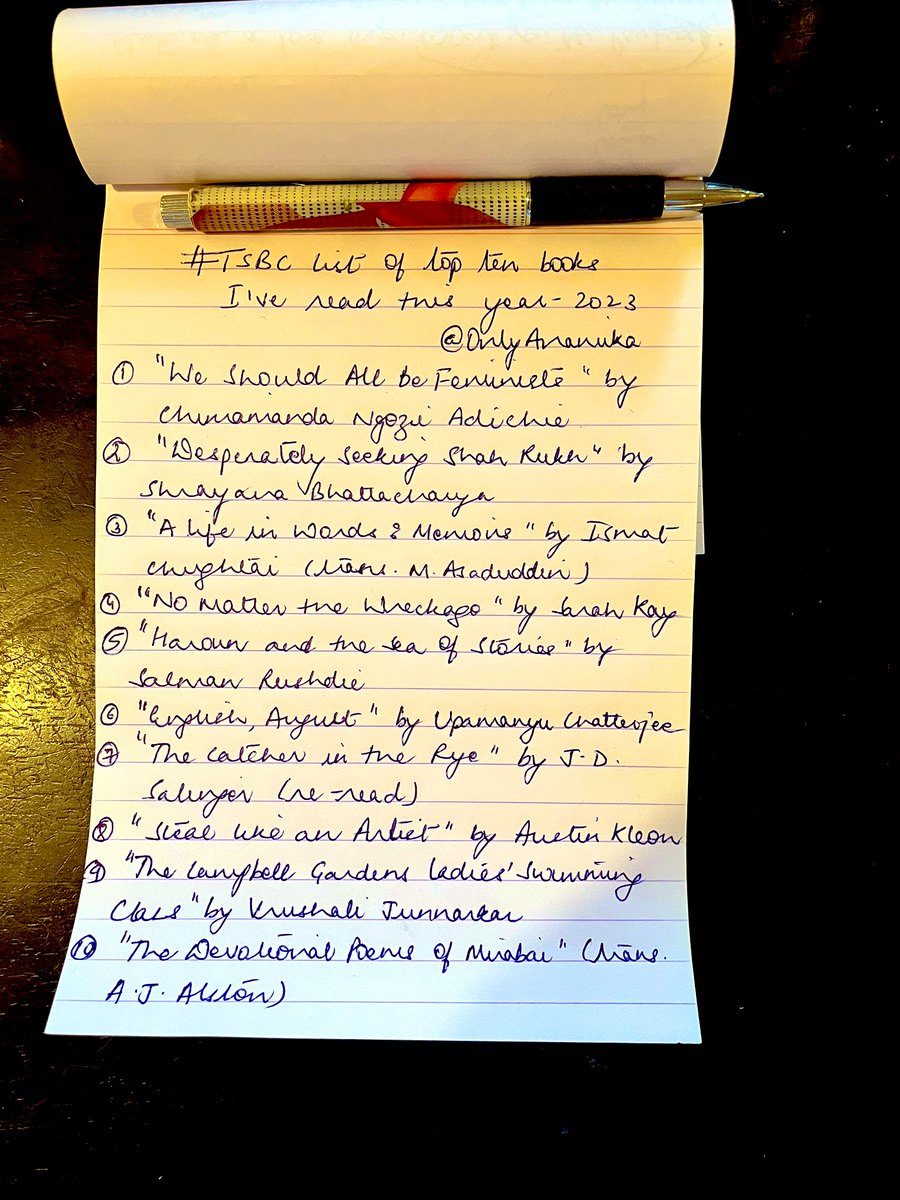 #TSBC list of top ten books
I've read this year - 2023
@OnlyAnamika
① "We Should All be Feminists" by
Chimamanda Ngozi Adichie
② "Desperately Seeking Shah Rukh" by
Shrayana Bhattacharya
③ "A Life in Words: Memoirs" by Ismat
Chughtai (trans. M. Asaduddin)
④ "No Matter the Wreckage" by Sarah Kay
⑤ "Haroun and the Sea of Stories" by
Salman Rushdie
⑥ "English, August" by Upamanyu Chatterjee
⑦ "The Catcher in the Rye" by J.D.
Salinger (re-read)
⑧ "Steal like an Artist" by Austin Kleon
⑨ "The Campbell Gardens Ladies' Swimming
Class" by Vrushali Junnarkar
⑩ "The Devotional Poems of Mirabai" (trans.
A.J. Alston)